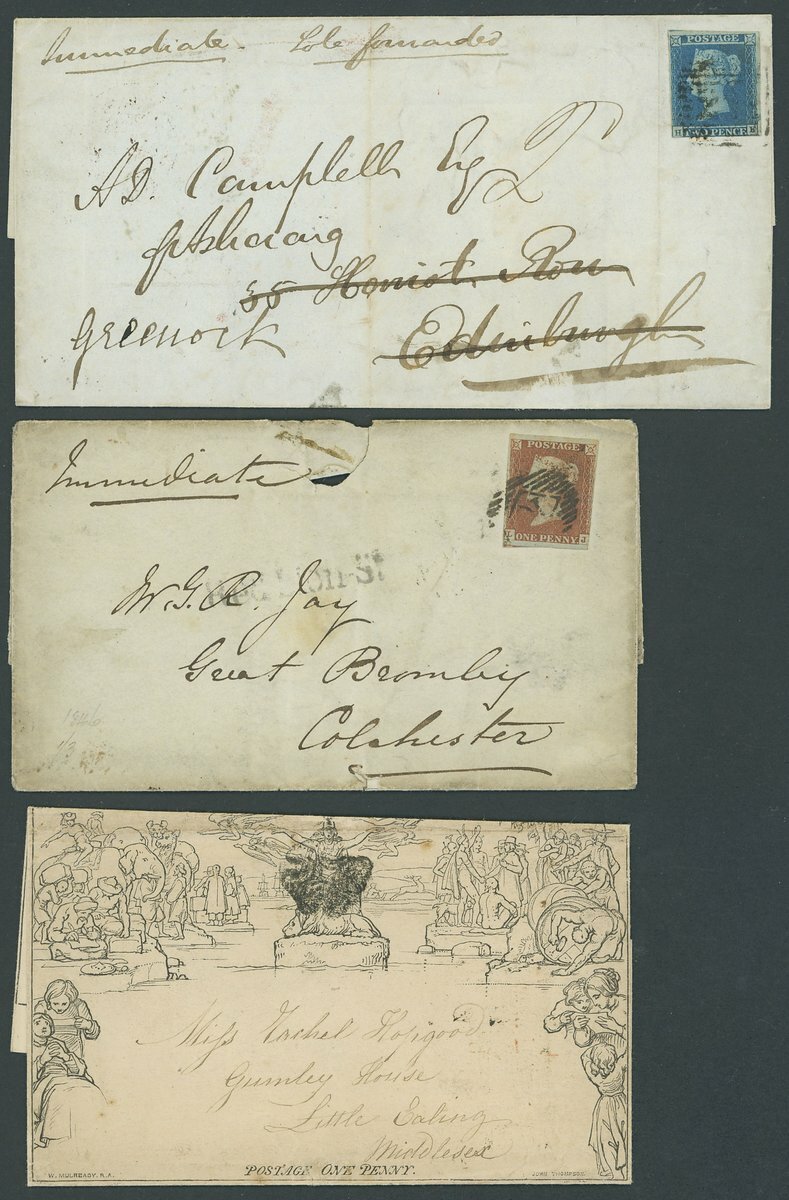 Immediate. forwarded
POSTAGE
TWO PENCE
A D. Campbell Esq
35 Heriot Row
Greenock
Edinburgh
Immediate
POSTAGE
ONE PENNY
J
W. G. R. Jay
Great Bromley
Colchester
1846
Miss Rachel Hopgood
Gumley House
Little Ealing
Middlesex
POSTAGE ONE PENNY.
W. MULREADY. R.A.
JOHN THOMPSON